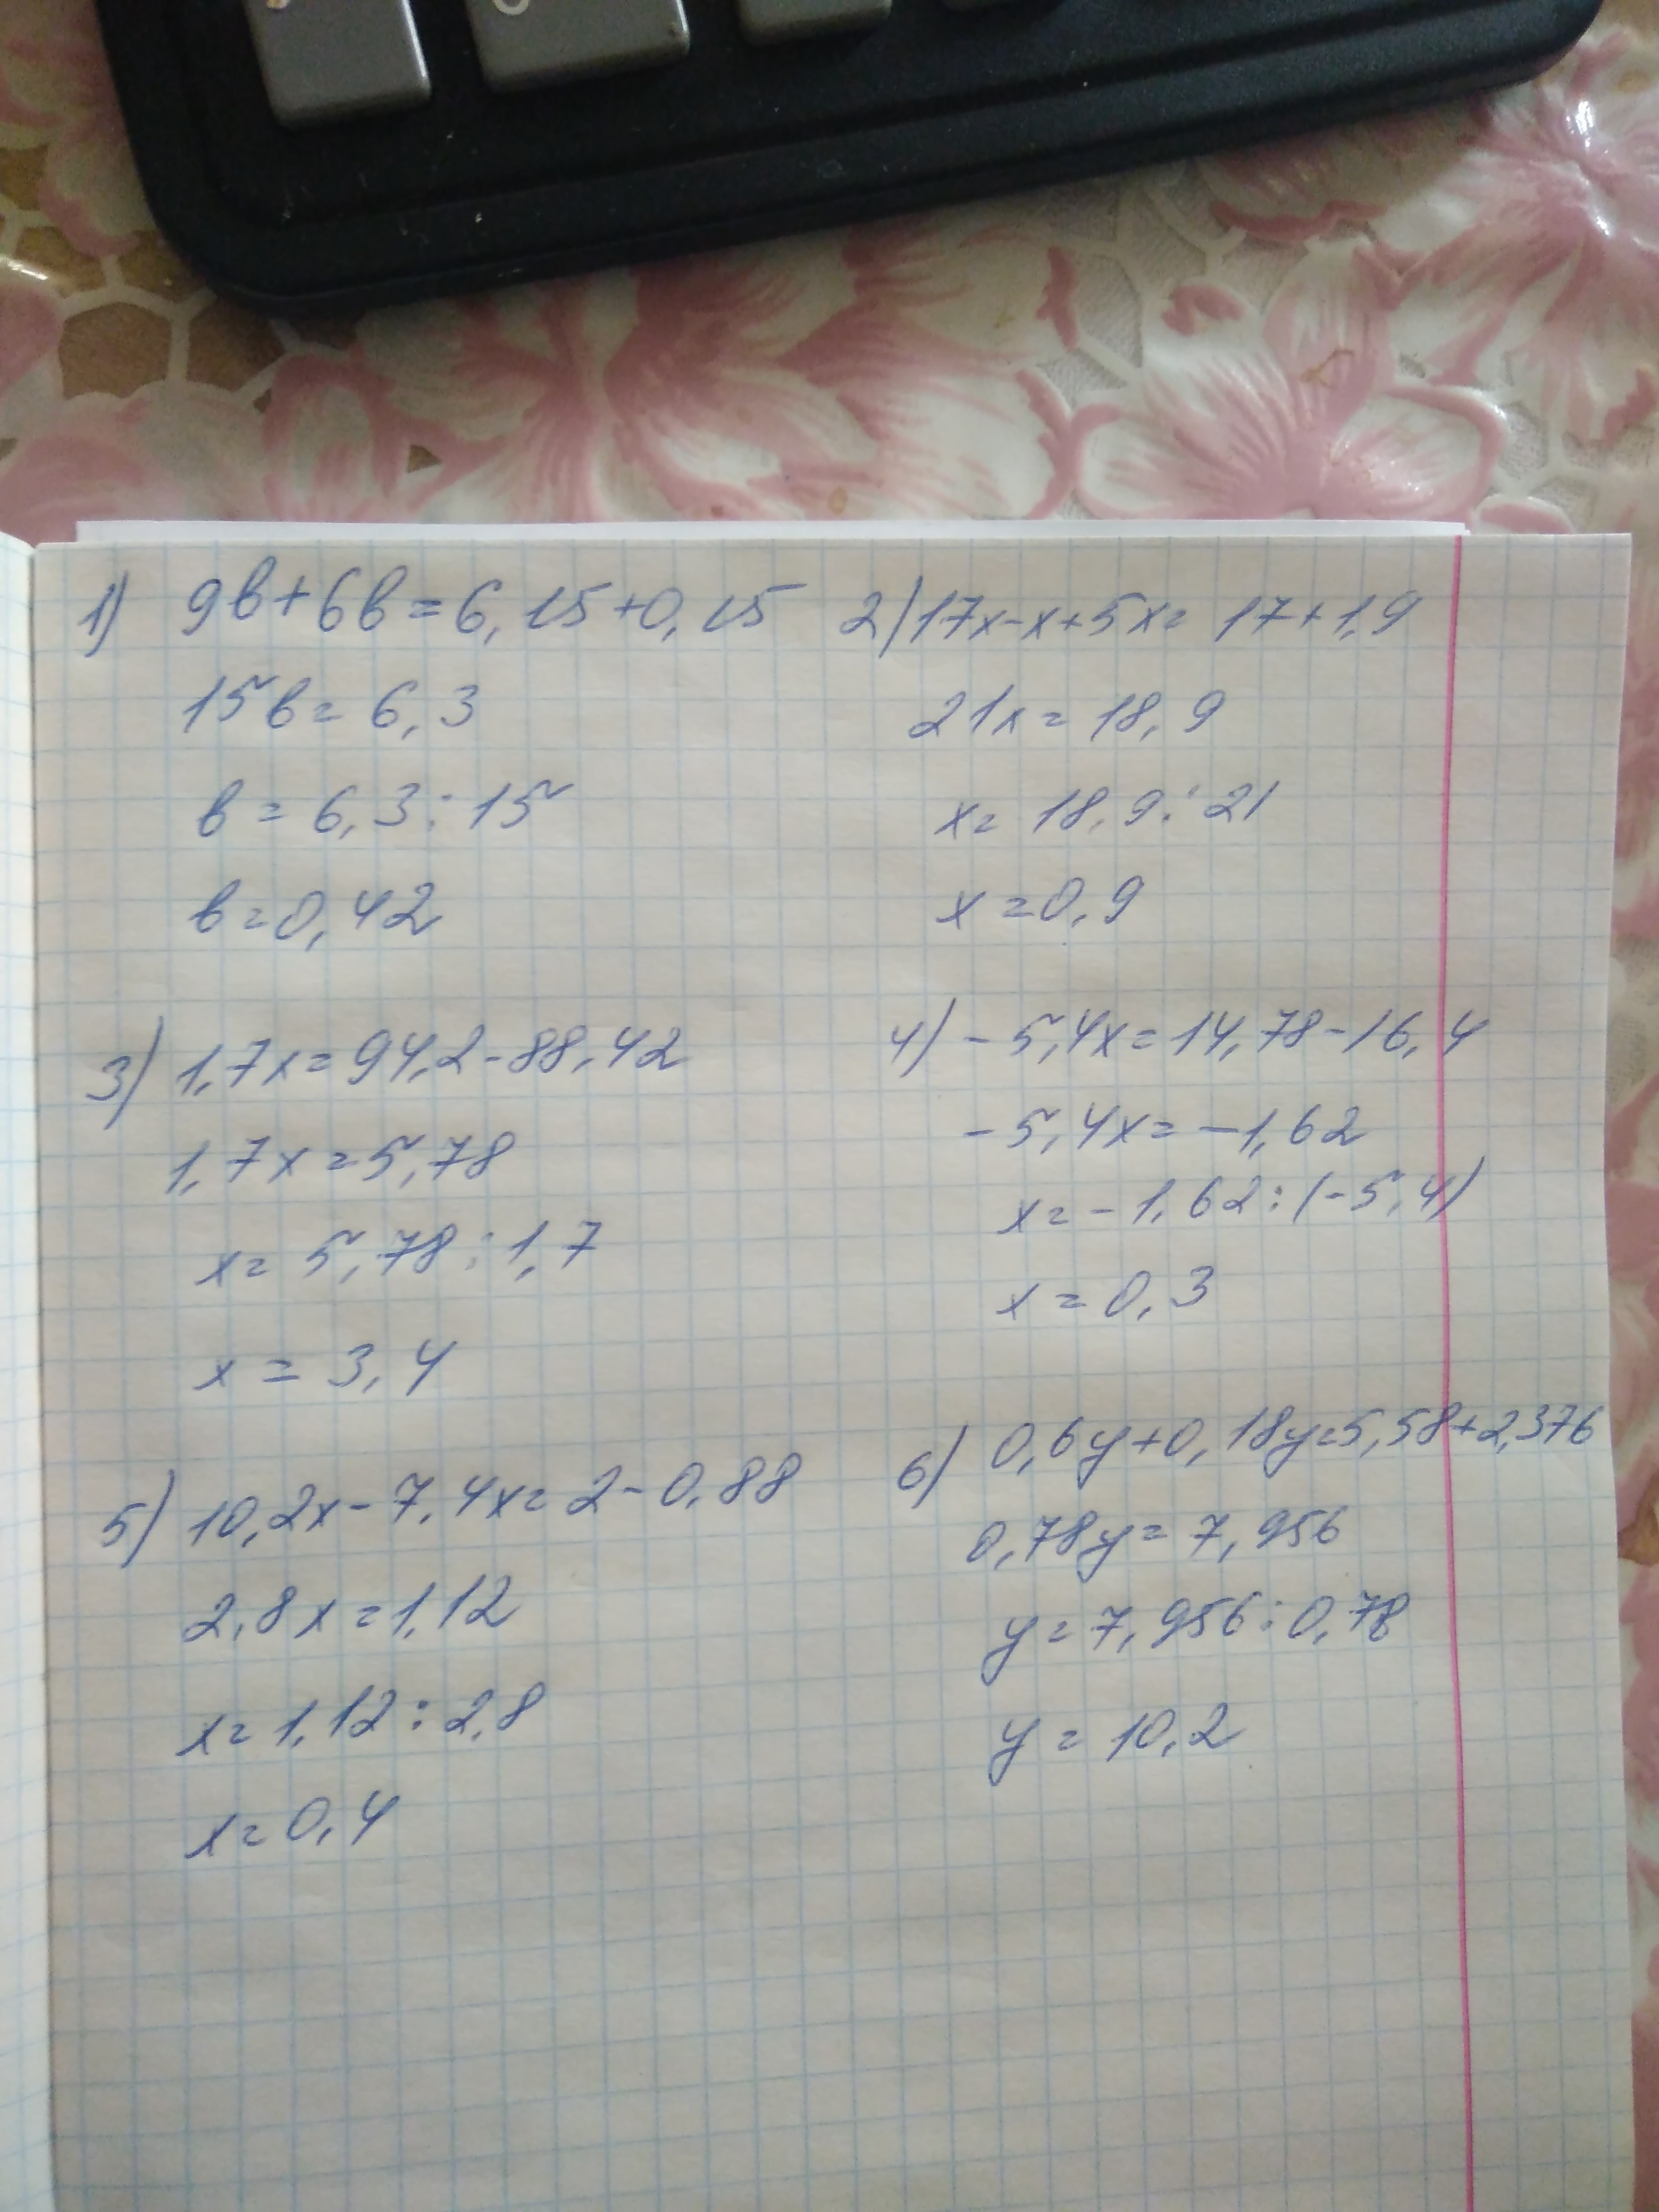 1) 9в+6в=6,15+0,15
15в=6,3
в=6,3:15
в=0,42
2) 17х-х+5х=17+1,9
21х=18,9
х=18,9:21
х=0,9
3) 1,7х=94,2-88,42
1,7х=5,78
х=5,78:1,7
х=3,4
4) -5,4х=14,78-16,4
-5,4х=-1,62
х=-1,62:(-5,4)
х=0,3
5) 10,2х-7,4х=2-0,88
2,8х=1,12
х=1,12:2,8
х=0,4
6) 0,6у+0,18у=5,58+2,376
0,78у=7,956
у=7,956:0,78
у=10,2